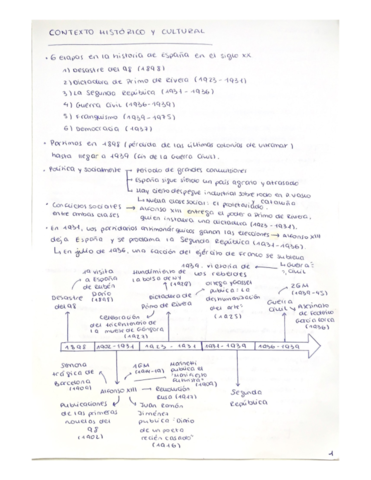 CONTEXTO HISTÓRICO Y CULTURAL
· 6 etapas en la historia de España en el siglo XX
1) Desastre del 98 (1898)
2) Dictadura de Primo de Rivera (1923 - 1931)
3) La Segunda República (1931 - 1936)
4) Guerra Civil (1936-1939)
5) Franquismo (1939-1975)
6) Democracia (1977)
· Partimos en 1898 (pérdida de las últimas colonias de ultramar)
hasta llegar a 1939 (fin de la Guerra Civil).
· Política y socialmente → período de grandes convulsiones
España sigue siendo un país agrario y atrasado
Hay cierto despegue industrial sobre todo en P. Vasco
y Cataluña
↳ nueva clase social: el proletariado.
· Conflictos sociales → Alfonso XIII entrega el poder a Primo de Rivera,
entre ambas clases quien instaura una dictadura (1923-1931).
· En 1931, los partidarios antimonárquicos ganan las elecciones → Alfonso XIII
deja España y se proclama la Segunda República (1931-1936).
↳ En julio de 1936, una facción del ejército de Franco se subleva
1ª visita
a España
de Rubén
Darío
Hundimiento de
la bolsa de NY
1939. Victoria de
los rebeldes
Guerra
Civil
Desastre
del 98
Dictadura de
Primo de Rivera
Ortega
publica: La
deshumanización
del arte
(1925)
2GM
(1939-45)
Guerra
Civil y Asesinato
de Federico
García Lorca
(1936)
Celebración
del tricentenario de
la muerte de Góngora
(1927)
1898
1902-1931
1923 - 1931
1931-1939
1936-1939
Semana
trágica de
Barcelona
(1909)
1GM
Marinetti
publica el
"Manifiesto
Futurista"
(1909)
Alfonso XIII → Revolución
Rusa (1917)
Segunda
República
Publicaciones
de las primeras
novelas del
98
(1902)
Juan Ramón
Jiménez
publica "Diario
de un poeta
recién casado"
(1916)
1